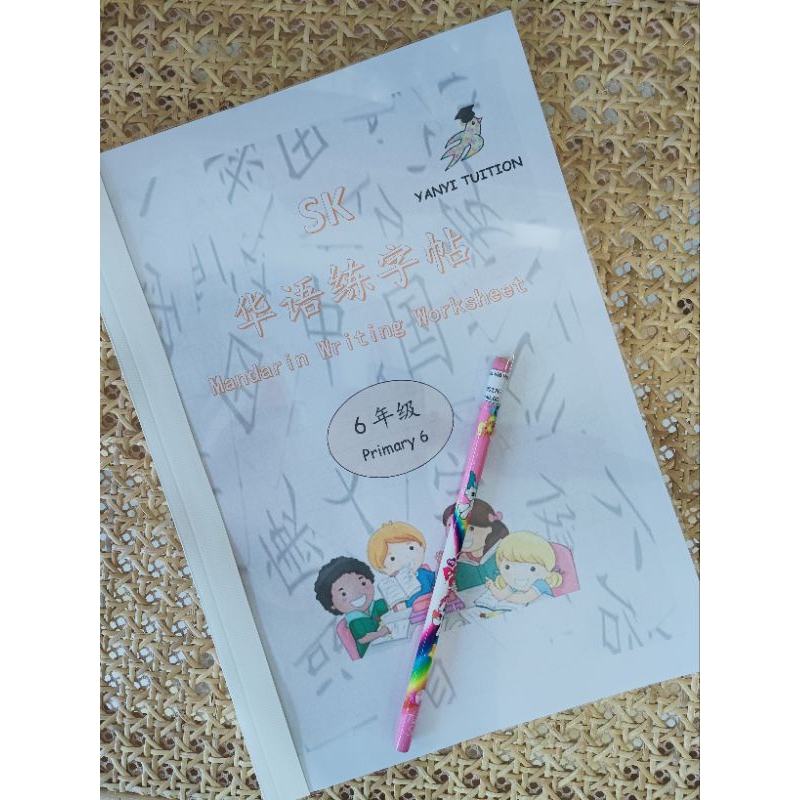 YANYI TUITION
SK
华语练字帖
Mandarin Writing Worksheet
6年级
Primary 6